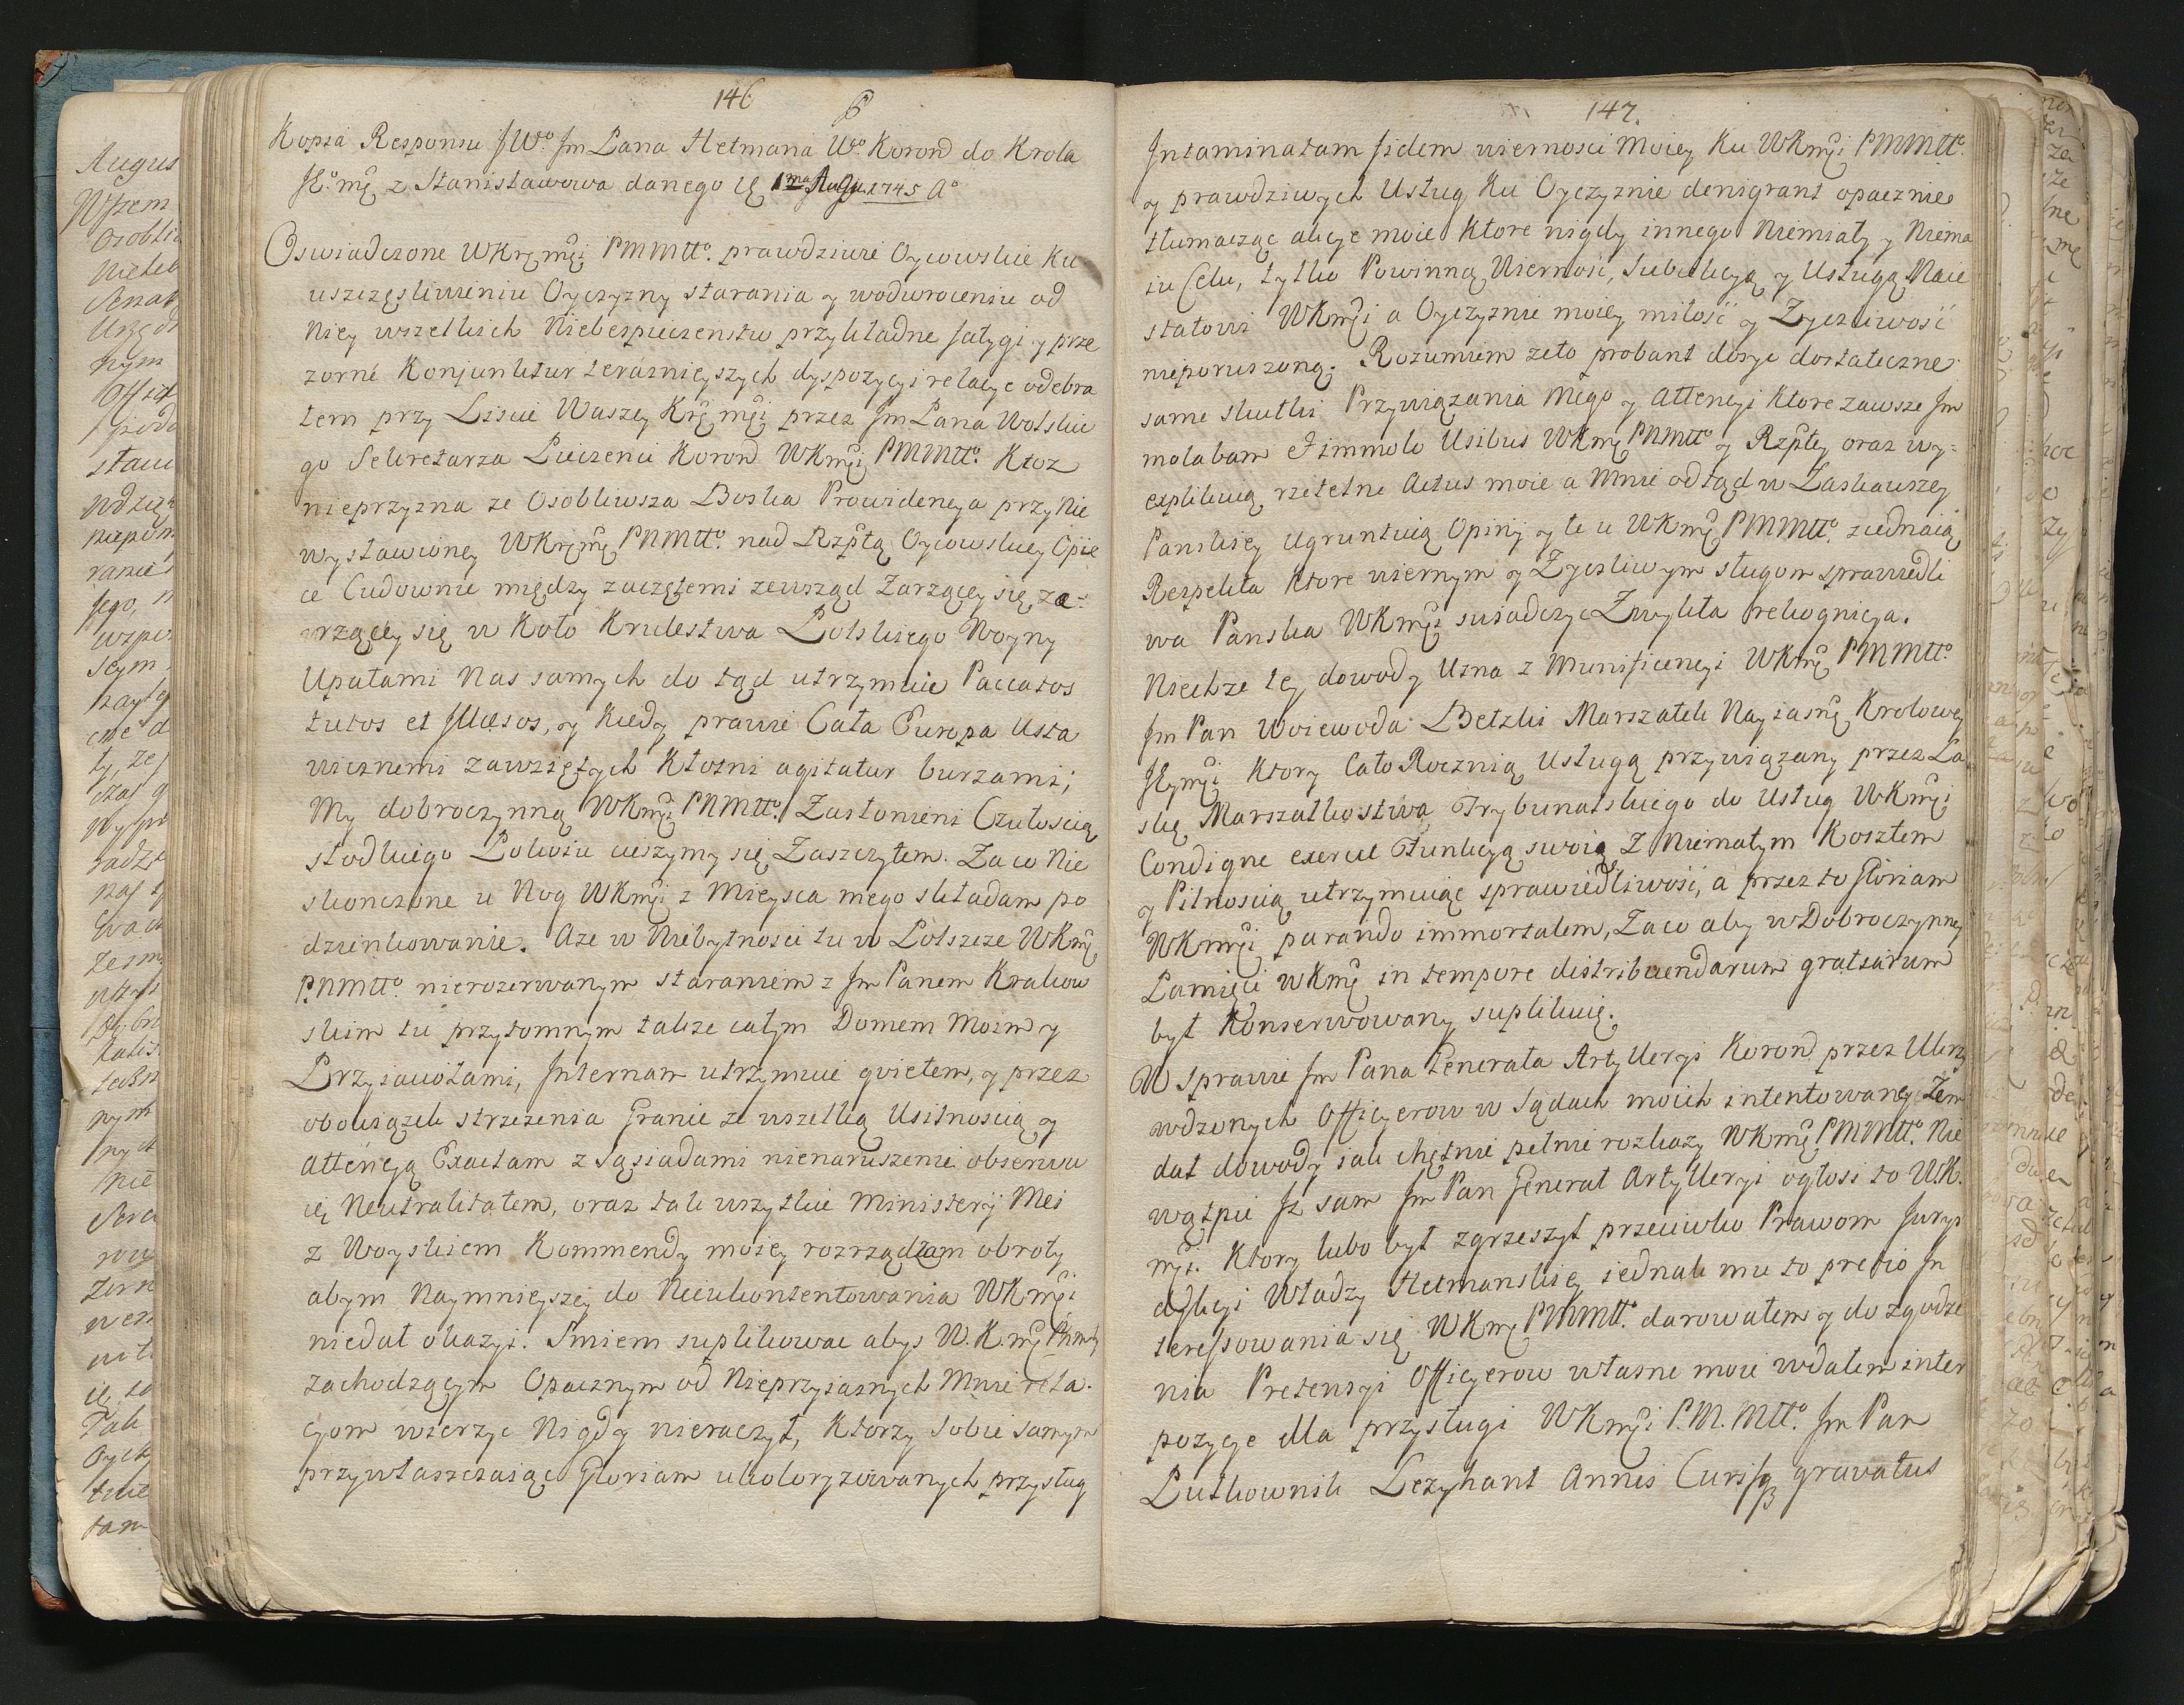 146
Kopia Responsu JWo Jm Pana Hetmana Wo Koron do Krola
JKo mci z Stanisławowa danego 1ma Augu 1745 Ao
Oswiadczone WKrmci PMMtto. prawdziwie Oycowskie ku
uszczęsliwieniu Oyczyzny starania y wodwroceniu od
Niey wszelkich Niebespieczenstw przykładne fatygi y prze
zorne Konjunktur terasnieyszych dyspozycyi relacye odebra
łem przy Liscie Waszey Krmci przez Jm Pana Wolskie
go Sekretarza Pieczeni Koron WKmci PMMtto. Ktoz
nieprzyzna ze Osobliwsza Boska Prowidencya przy Nie
wystawioney WKrmci PNMtto. nad Rzptą Oycowskiey Opie
ce Cudownie między zaczętemi zewsząd Zarzącey się za-
rzącey się w Koło Krulestwa Polskiego Woyny
Upałami Nas samych do tąd utrzymuie Paccatos
tutos et Illæsos, y kiedy prawie Cała Europa Usta
wicznemi zawziętych Kłotni agitatur burzami;
My dobroczynną WKmci PNMtto. Zasłonieni Czułoscią
słodkiego Pokoiu cieszymy się Zaszczytem. Za co Nie
skonczone u Nog WKmci z Mieysca mego składam po
dzienkowanie. Aze w Niebytnosci tu w Polszcze WKmci
PNMtto. nierozerwanym staraniem z Jm Panem Krakow
skim tu przytomnym takze całym Domem Moim y
Przyiaciołami, Internam utrzymuie qvietem, y przez
obowiązek strzezenia Granic ze wszelką Usilnoscią y
attencyą Exactam z Sąsiadami nienaruszenie obserwu
ię Neutralitatem, oraz tak wszytkie Ministerij Mei
z Woyskiem Kommendy moiey rozrządzam obroty
abym Naymnieyszey do Nieukontentowania WKmci
niedał okazyi. Smiem suplikowac abys W.K.mci PNMtt
zachodzącym Opacznym od Nieprzyiasnych Mnie rela.
cyom wierzyc Nigdy nieraczył, Ktorzy sobie samym
przywłaszczaiąc Gloriam ukoloryzowanych przysług
147.
Intaminatam fidem wiernosci Moiey ku WKmci PMMtto.
y prawdziwych Usług ku Oyczyznie denigrant opacznie
tłumacząc akcye moie Ktore nigdy innego Niemiały y Niema
iu Celu, tylko Powinną Wiernosć, Subiekcyą y Usługą Maie
statowi WKmci a Oyczyznie moiey miłość y Zyczliwość
nieporuszoną. Rozumiem zeto probant dosyc dostateczne
same skutki Przywiązania Mego y Attencyi Ktore zawsze Jm
molabam et immolo Usibus WKmci PNMtto y Rzptey oraz wy=
explikuią rzetelne Actus moie a Mnie odtąd w Łaskawszey
Panskiey Ugruntuią Opinij y te u WKmci PMMtto. ziednaią
Respekta Ktore wiernym y Zyczliwym sługom sprawiedli
wa Panska WKmci swiadczyc Zwykła rekognicya.
Niechze tey dowody Uzna z Munificencyi WKmci PMMtto.
Jm Pan Woiewoda Bełzki Marszałek Nayiasn Krolowey
JKmci Ktory Cało Rocznią Usługą przywiązany przez La
skę Marszałkostwa Trybunalskiego do Usług WKmci
Condigne exercet Funkcyą swoią Z Niemałym Kosztem
y Pilnoscią utrzymuiąc sprawiedliwość, a przez to Gloriam
WKmci parando immortalem, Zaco aby w Dobroczynney
Pamięci WKmci in tempore distribuendarum gratiarum
był Konserwowany suplikuię.
W Sprawie Jm Pana Generała Artylleryi Koron przez Ukrzy
wdzonych Officyerow w Sądach moich intentowaney Zem
dał dowody iak chętnie pełnie rozkazy WKmci PMMtto. Nie
wątpie Jz sam Jm Pan Generał Artylleryi ogłosi to W.K.
mci. Ktory lubo był zgrzeszył przeciwko Prawom Jurys
dykcyi Władzy Hetmanskiey iednak mu to pretio In
teressowania się WKmci PNMtto. darowałem y do zgodze
nia Pretensyi Officyerow własne moie wdałem inter
pozycye dla przysługi WKmci P.M.Mtto. Jm Pan
Pułkownik Lezyhant Annis Curisq gravatus